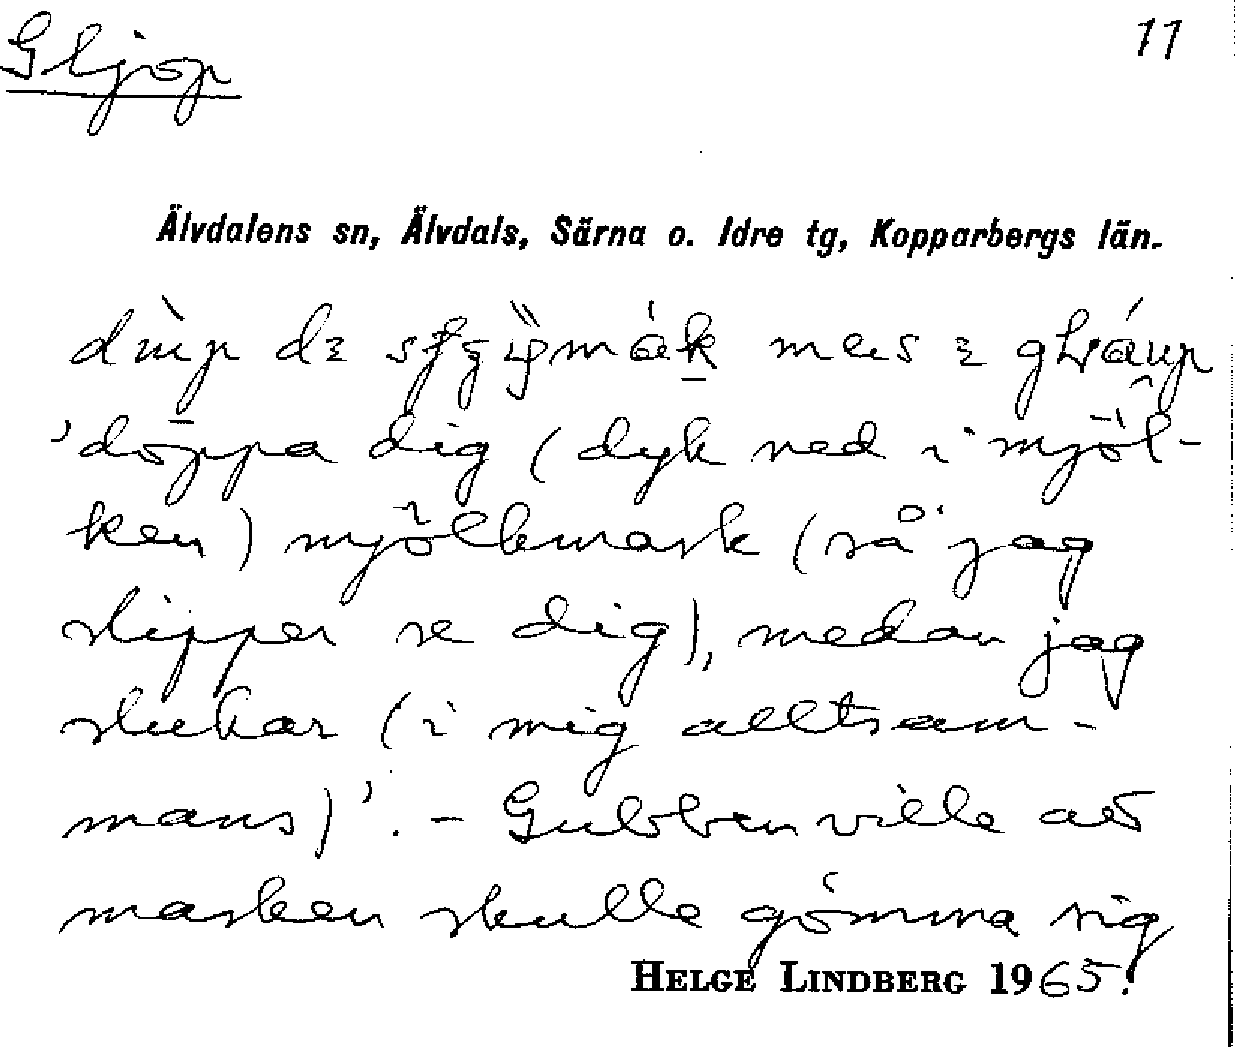 Gljop
11
Älvdalens sn, Älvdals, Särna o. Idre tg, Kopparbergs län.
'doppa dig (dyk ned i mjöl-
ken) mjölkmask (så jag
slipper se dig), medan jag
slukar (i mig alltsam-
mans)'. - Gubben ville att
masken skulle gömma sig
HELGE LINDBERG 1965.